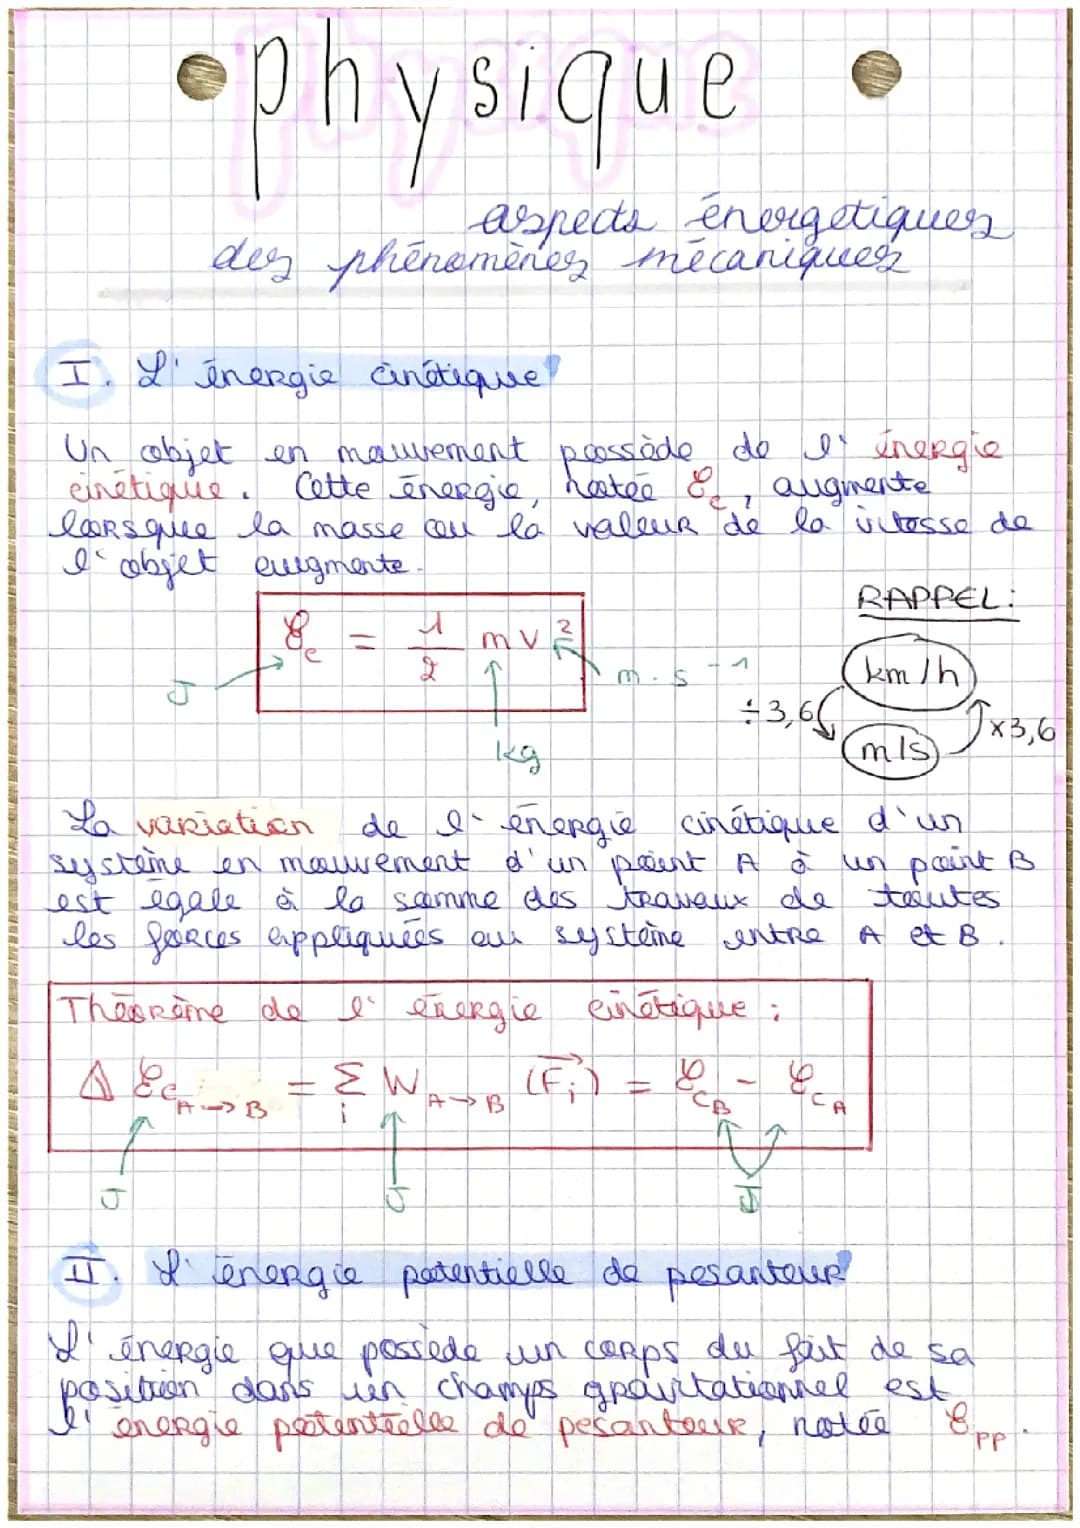 physique
aspects énergétiques
des phénomènes mécaniques
I. L'énergie cinétique
Un objet en mouvement possède de l'énergie
cinétique. Cette énergie, notée Ec, augmente
lorsque la masse ou la valeur de la vitesse de
l'objet augmente.
RAPPEL:
Ec = 1/2 m v²
J
m.s⁻¹
kg
km/h
÷3,6
x3,6
m/s
La variation de l'énergie cinétique d'un
système en mouvement d'un point A à un point B
est égale à la somme des travaux de toutes
les forces appliquées au système entre A et B.
Théorème de l'énergie cinétique :
Δ Ec A→B = Σ i W A→B (F⃗i) = Ec B - Ec A
J
J
J
II. L'énergie potentielle de pesanteur
L'énergie que possède un corps du fait de sa
position dans un champs gravitationnel est
l'énergie potentielle de pesanteur, notée Epp.